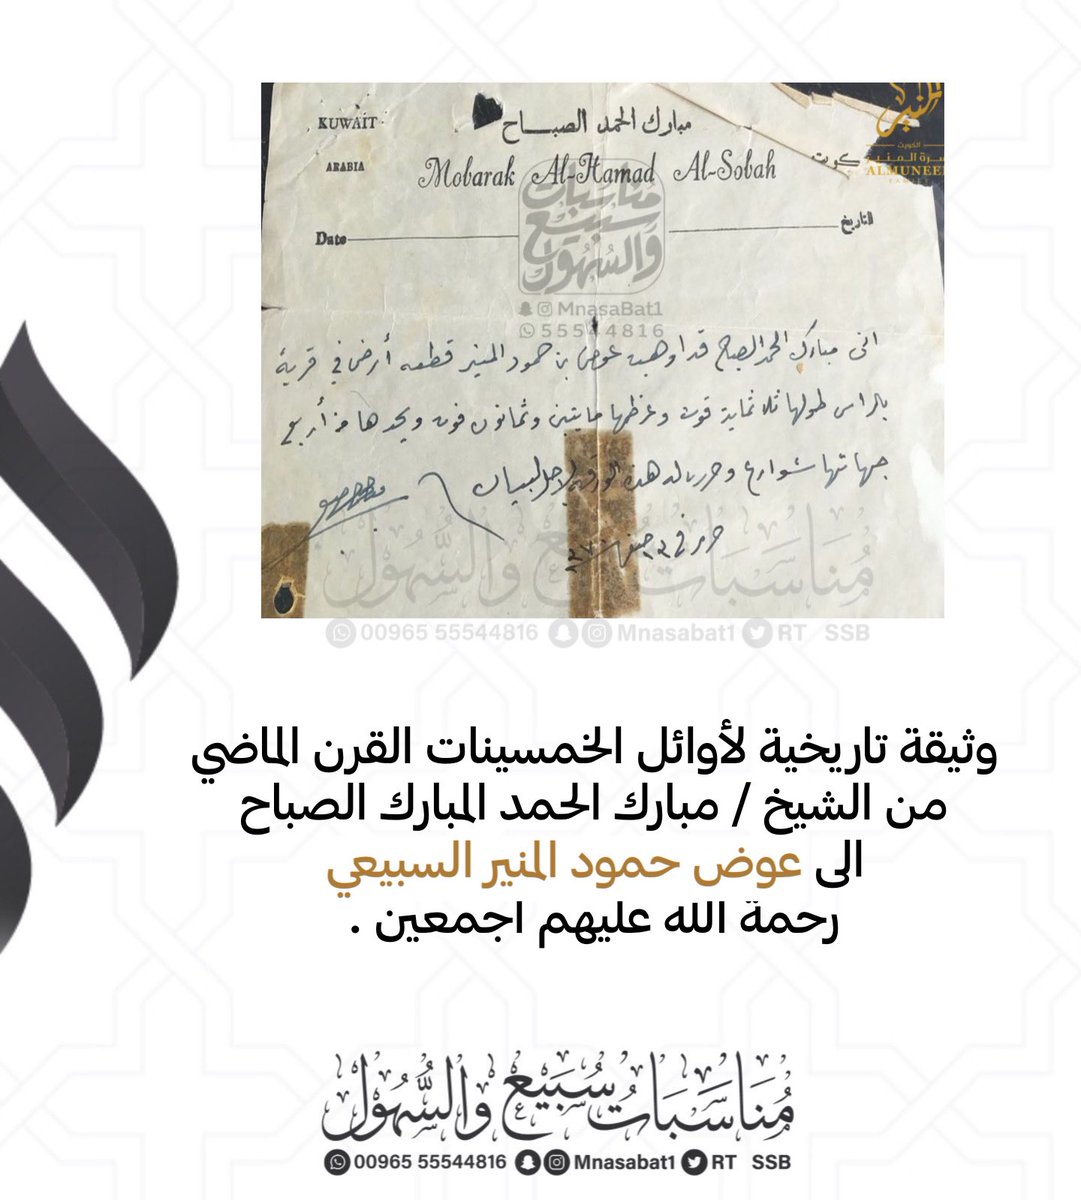 KUWAIT
مبارك الحمد الصباح
كويت
ARABIA
Mobarak Al-Hamad Al-Sobah
المنير
الكويت
ALMUNEER
Date
التاريخ
مناسبات
سبيع
والسهول
MnasaBat1
55544816
اني مبارك الحمد الصباح قد اوهبت عوض بن حمود المنير قطعه أرض في قرية
بالراس طولها ثلاثماية فوت وعرضها مايتين وثمانون فوت ويحدها من أربع
جهاتها شوارع وحررنا له هذه الورقة لاجل البيان
حرر في
مناسبات سبيع والسهول
00965 55544816 Mnasabat1 RT SSB
وثيقة تاريخية لأوائل الخمسينات القرن الماضي
من الشيخ / مبارك الحمد المبارك الصباح
الى عوض حمود المنير السبيعي
رحمة الله عليهم اجمعين .
مُنَاسَبَاتُ سُبَيع والسُّهُول
00965 55544816 Mnasabat1 RT SSB